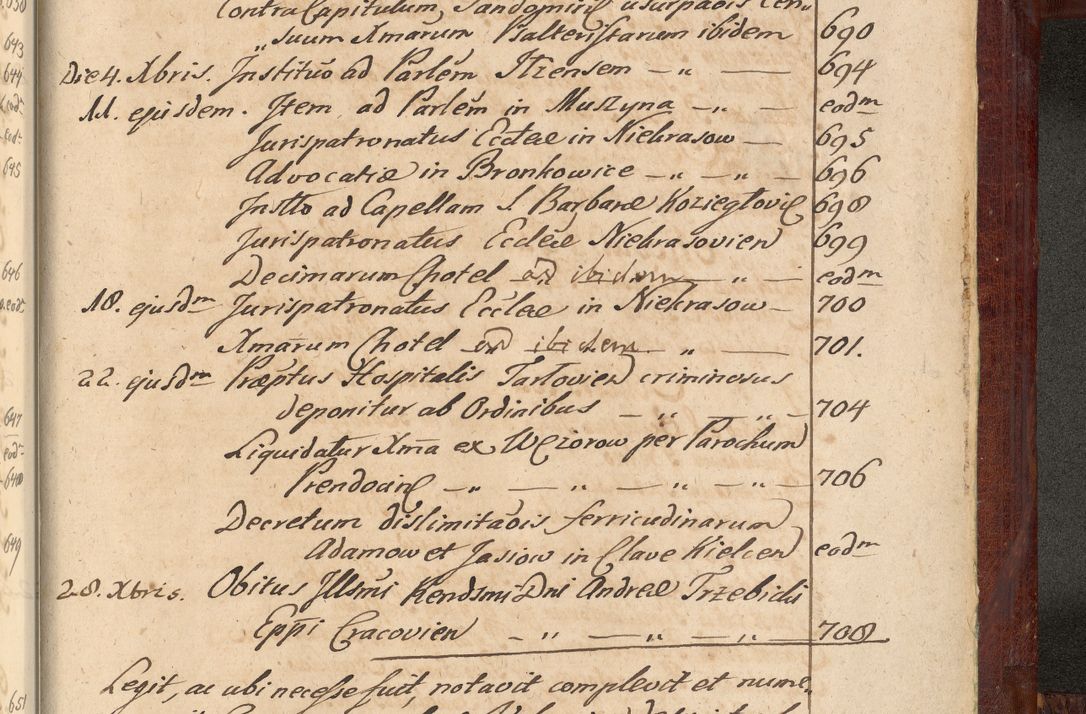 Contra Capitulum Sandomirie usurpaõis Cen„
„suum Xmarum Psalteristarum ibidem 690
Die 4. Xbris. Institũo ad Parlẽm Ilzensem — „ — 694
11. ejusdem. Item ad Parlẽm in Muszyna — „ — eodm
Jurispatronatus Ecclæ in Niekrasow — 695
Advocatiæ in Bronkowice — „ — „ — 696
Instto ad Capellam S. Barbaræ Koziegłovie 698
Jurispatronatus Ecclæ Niekrasovien 699
Decimarum Chotel ad ibidem „ — eodm
18. ejusdm Jurispatronatus Ecclæ in Niekrasow — 700
Xmarum Chotel ad ibidem „ — 701.
22. ejusdm Præptus Hospitalis Tarlovien criminosus
deponitur ab Ordinibus — „ — „ — 704
Liquidatur Xma ex Węziorow per Parochum
Prendocin — „ — „ — „ — „ — 706
Decretum dislimitaõis ferricudinarum
Adamow et Jasiow in Clave Kielcen eodm
28. Xbris. Obitus Illsmi Rendsmi Dni Andreæ Trzebicki
Eppi Cracovien — „ — „ — „ — 708
Legit, ac ubi necesse fuit, notavit complevit et nume„
643
644
eod.
645
646
eod.
647
eod.
648
649
651